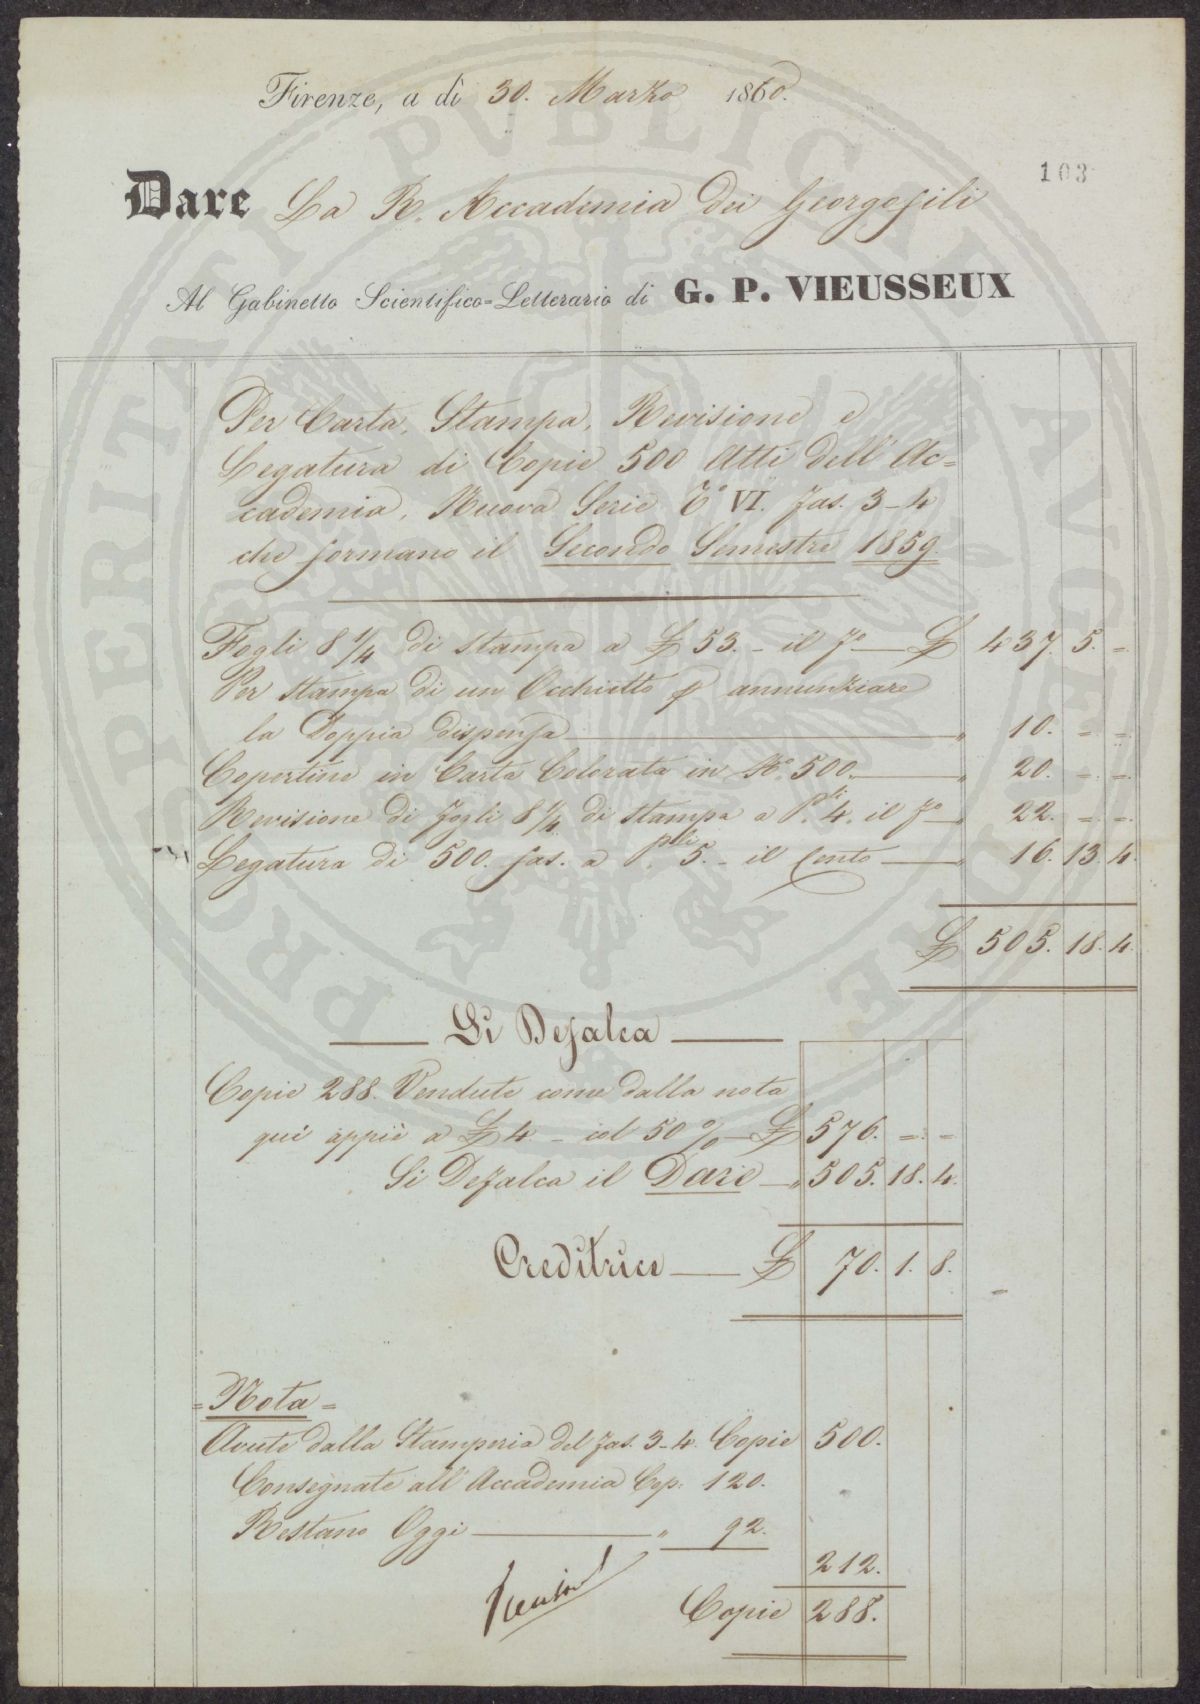 Firenze, a dì 30. Marzo 1860.
103
Dare La R. Accademia dei Georgofili
Al Gabinetto Scientifico=Letterario di G. P. VIEUSSEUX
Per Carta, Stampa, Revisione e
Legatura di Copie 500 Atti dell' Ac=
cademia, Nuova Serie To VI. fas. 3-4
che formano il Secondo Semestre 1859.
Fogli 8 1/4 di stampa a £ 53. - il fo £ 437. 5. =
Per stampa di un Occhietto p annunziare
la Doppia dispensa " 10. = =
Copertine in Carta Colorata in No. 500. " 20. = =
Revisione di fogli 8 1/4 di stampa a Pli. 4. il fo " 22. = =
Legatura di 500. fas. a Pli. 5. - il Cento " 16. 13. 4.
£ 505. 18. 4.
Si Defalca
Copie 288. Vendute come dalla nota
qui appiè a £ 4 - col 50 % £ 576. = =
Si Defalca il Dare " 505. 18. 4.
Creditrice £ 70. 1. 8.
= Nota =
Avute dalla Stamperia del fas. 3-4. Copie 500.
Consegnate all' Accademia Cop. 120.
Restano Oggi " 92.
212.
Copie 288.
PROPERITATI PVBLICAE AVGENDAE